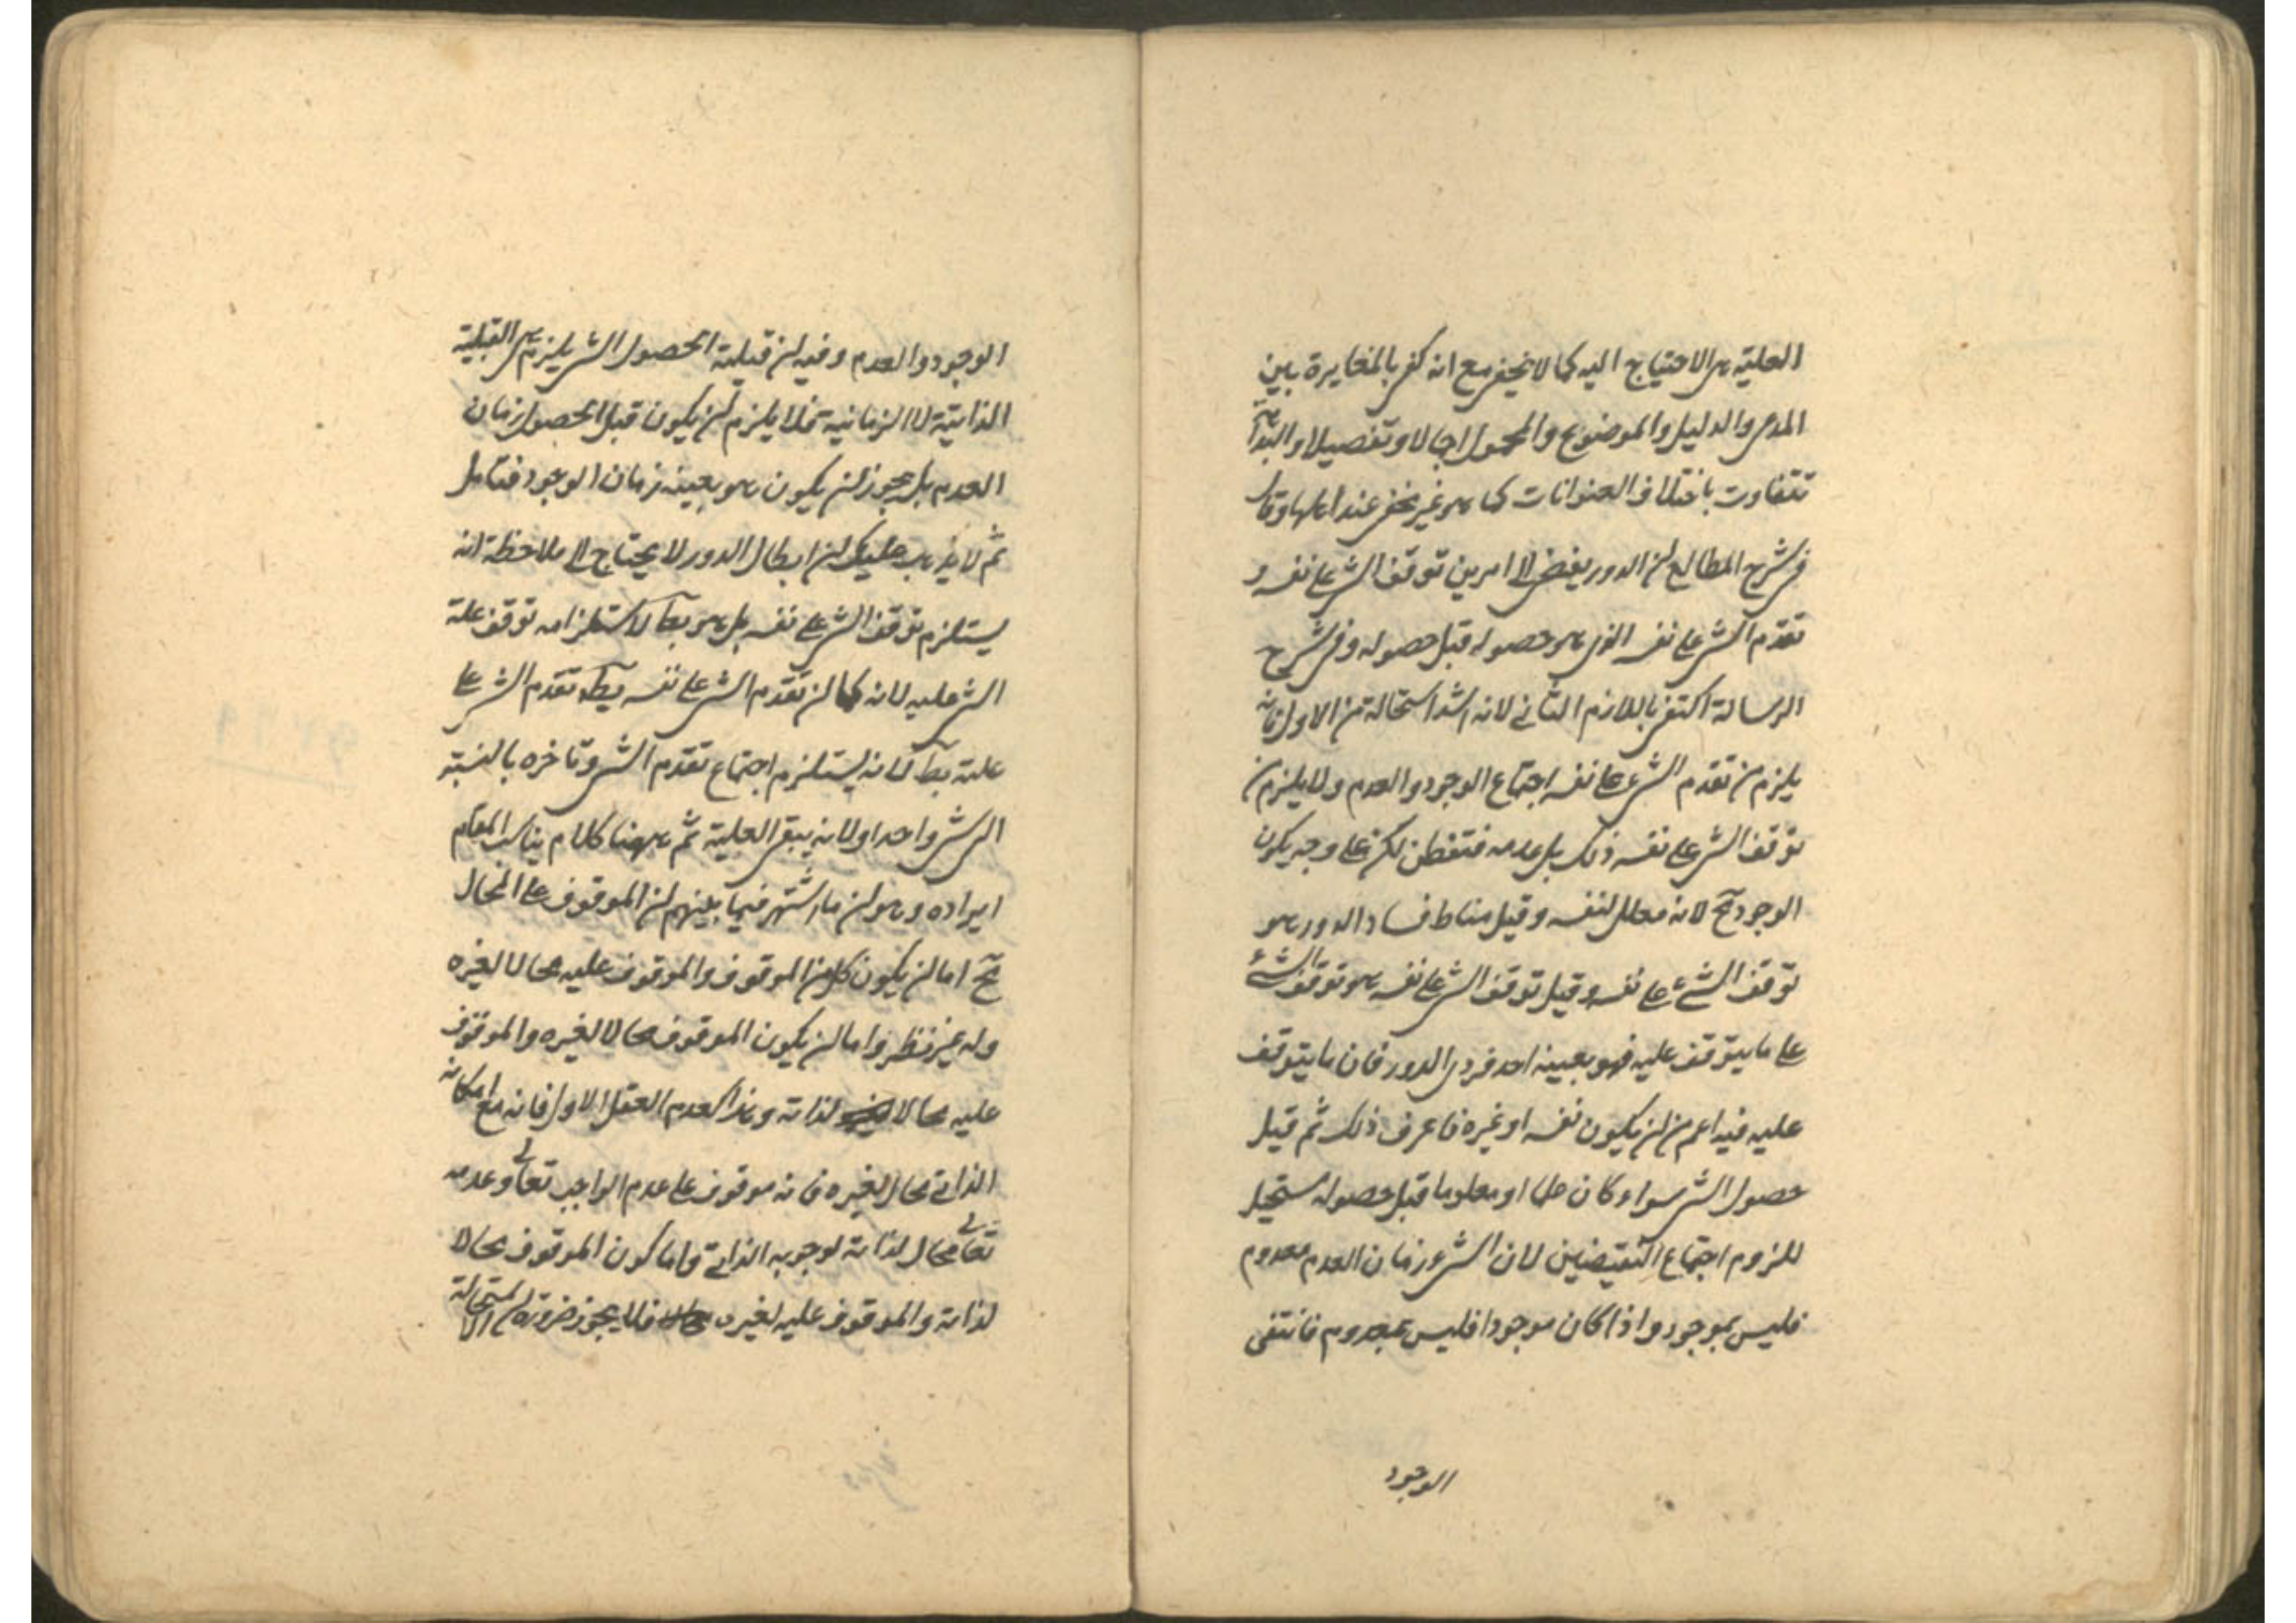 العلية هى الاحتياج اليه كما لا يخفى مع انه كفى بالمغايرة بين
المدعى والدليل والموضوع والمحمول اجمالا وتفصيلا والبداهة
تتفاوت باختلاف العنوانات كما هو غير مخفى عند اهلها وقال
فى شرح المطالع ان الدور يفضى الى امرين توقف الشئ على نفسه و
تقدم الشئ على نفسه الذى هو حصوله قبل حصوله وفى شرح
الرسالة اكتفى باللازم الثانى لانه اشد استحالة من الاول فانه
يلزم من تقدم الشئ على نفسه اجتماع الوجود والعدم ولا يلزم من
توقف الشئ على نفسه ذلك بل عدمه فتفطن لكن على وجه يكون
الوجود ح لانه معلل لنفسه وقيل مناط فساد الدور هو
توقف الشئ على نفسه وقيل توقف الشئ على نفسه هو توقف الشئ
على ما يتوقف عليه فهو بعينه احد فردى الدور فان ما يتوقف
عليه فيه اعم من ان يكون نفسه او غيره فاعرف ذلك ثم قيل
حصول الشئ سواء كان علما او معلوما قبل حصوله مستحيل
للزوم اجتماع النقيضين لان الشئ زمان العدم معدوم
فليس بموجود واذا كان موجودا فليس بمعدوم فانتفى
الوجود
الوجود والعدم وفيه ان قبلية الحصول الشئ يلزم هى القبلية
الذاتية لا الزمانية فلا يلزم ان يكون قبل الحصول زمان
العدم بل يجوز ان يكون هو بعينه زمان الوجود فتامل
ثم لا يذهب عليك ان ابطال الدور لا يحتاج الى ملاحظة انه
يستلزم توقف الشئ على نفسه بل هو بط لاستلزامه توقف علة
الشئ عليه لانه كما ان تقدم الشئ على نفسه بط تقدم الشئ على
علته بط لانه يستلزم اجتماع تقدم الشئ وتاخره بالنسبة
الى شئ واحد اولا انه يبقى العلية ثم ههنا كلام يناسب المقام
ايراده وهو ان ما اشتهر فيما بينهم ان الموقوف على المحال
مح اما ان يكون كل من الموقوف والموقوف عليه محالا لغيره
وله غير نظر واما ان يكون الموقوف محالا لغيره والموقوف
عليه محالا لذاته وهذا كعدم العقل الاول فانه مع امكانه
الذاتى محال لغيره فانه موقوف على عدم الواجب تعالى وعدمه
تعالى محال لذاته لوجوبه الذاتى واما كون الموقوف محالا
لذاته والموقوف عليه لغيره فلا يجوز ضرورة ان الاستحالة